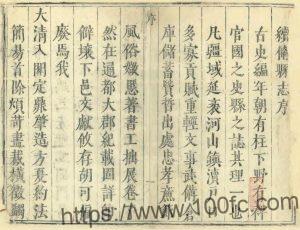 續脩縣志序
古史編年朝有柱下野有稗
官國之史縣之誌其理一也
凡疆域延袤河山鎮瀆戶
多寡貢賦重輕文事武備倉
庫儲蓄出處忠孝廉
序
風俗媺惡著書工拙展卷了
然在通都大郡紀載固詳即
僻壤下邑文獻攸存胡可
廢焉我
大清入關定鼎肇造方夏約法
簡易首除煩苛盡裁橫徵蠲
https://www.100fc.com